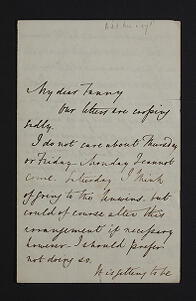 My dear Fanny
Our letters are crossing
sadly.
I do not care about Thursday
or Friday. Monday I cannot
come. Saturday I think
of going to the but
could of course alter this
arrangement if necessary
however I should prefer
not doing so.
It is getting to be